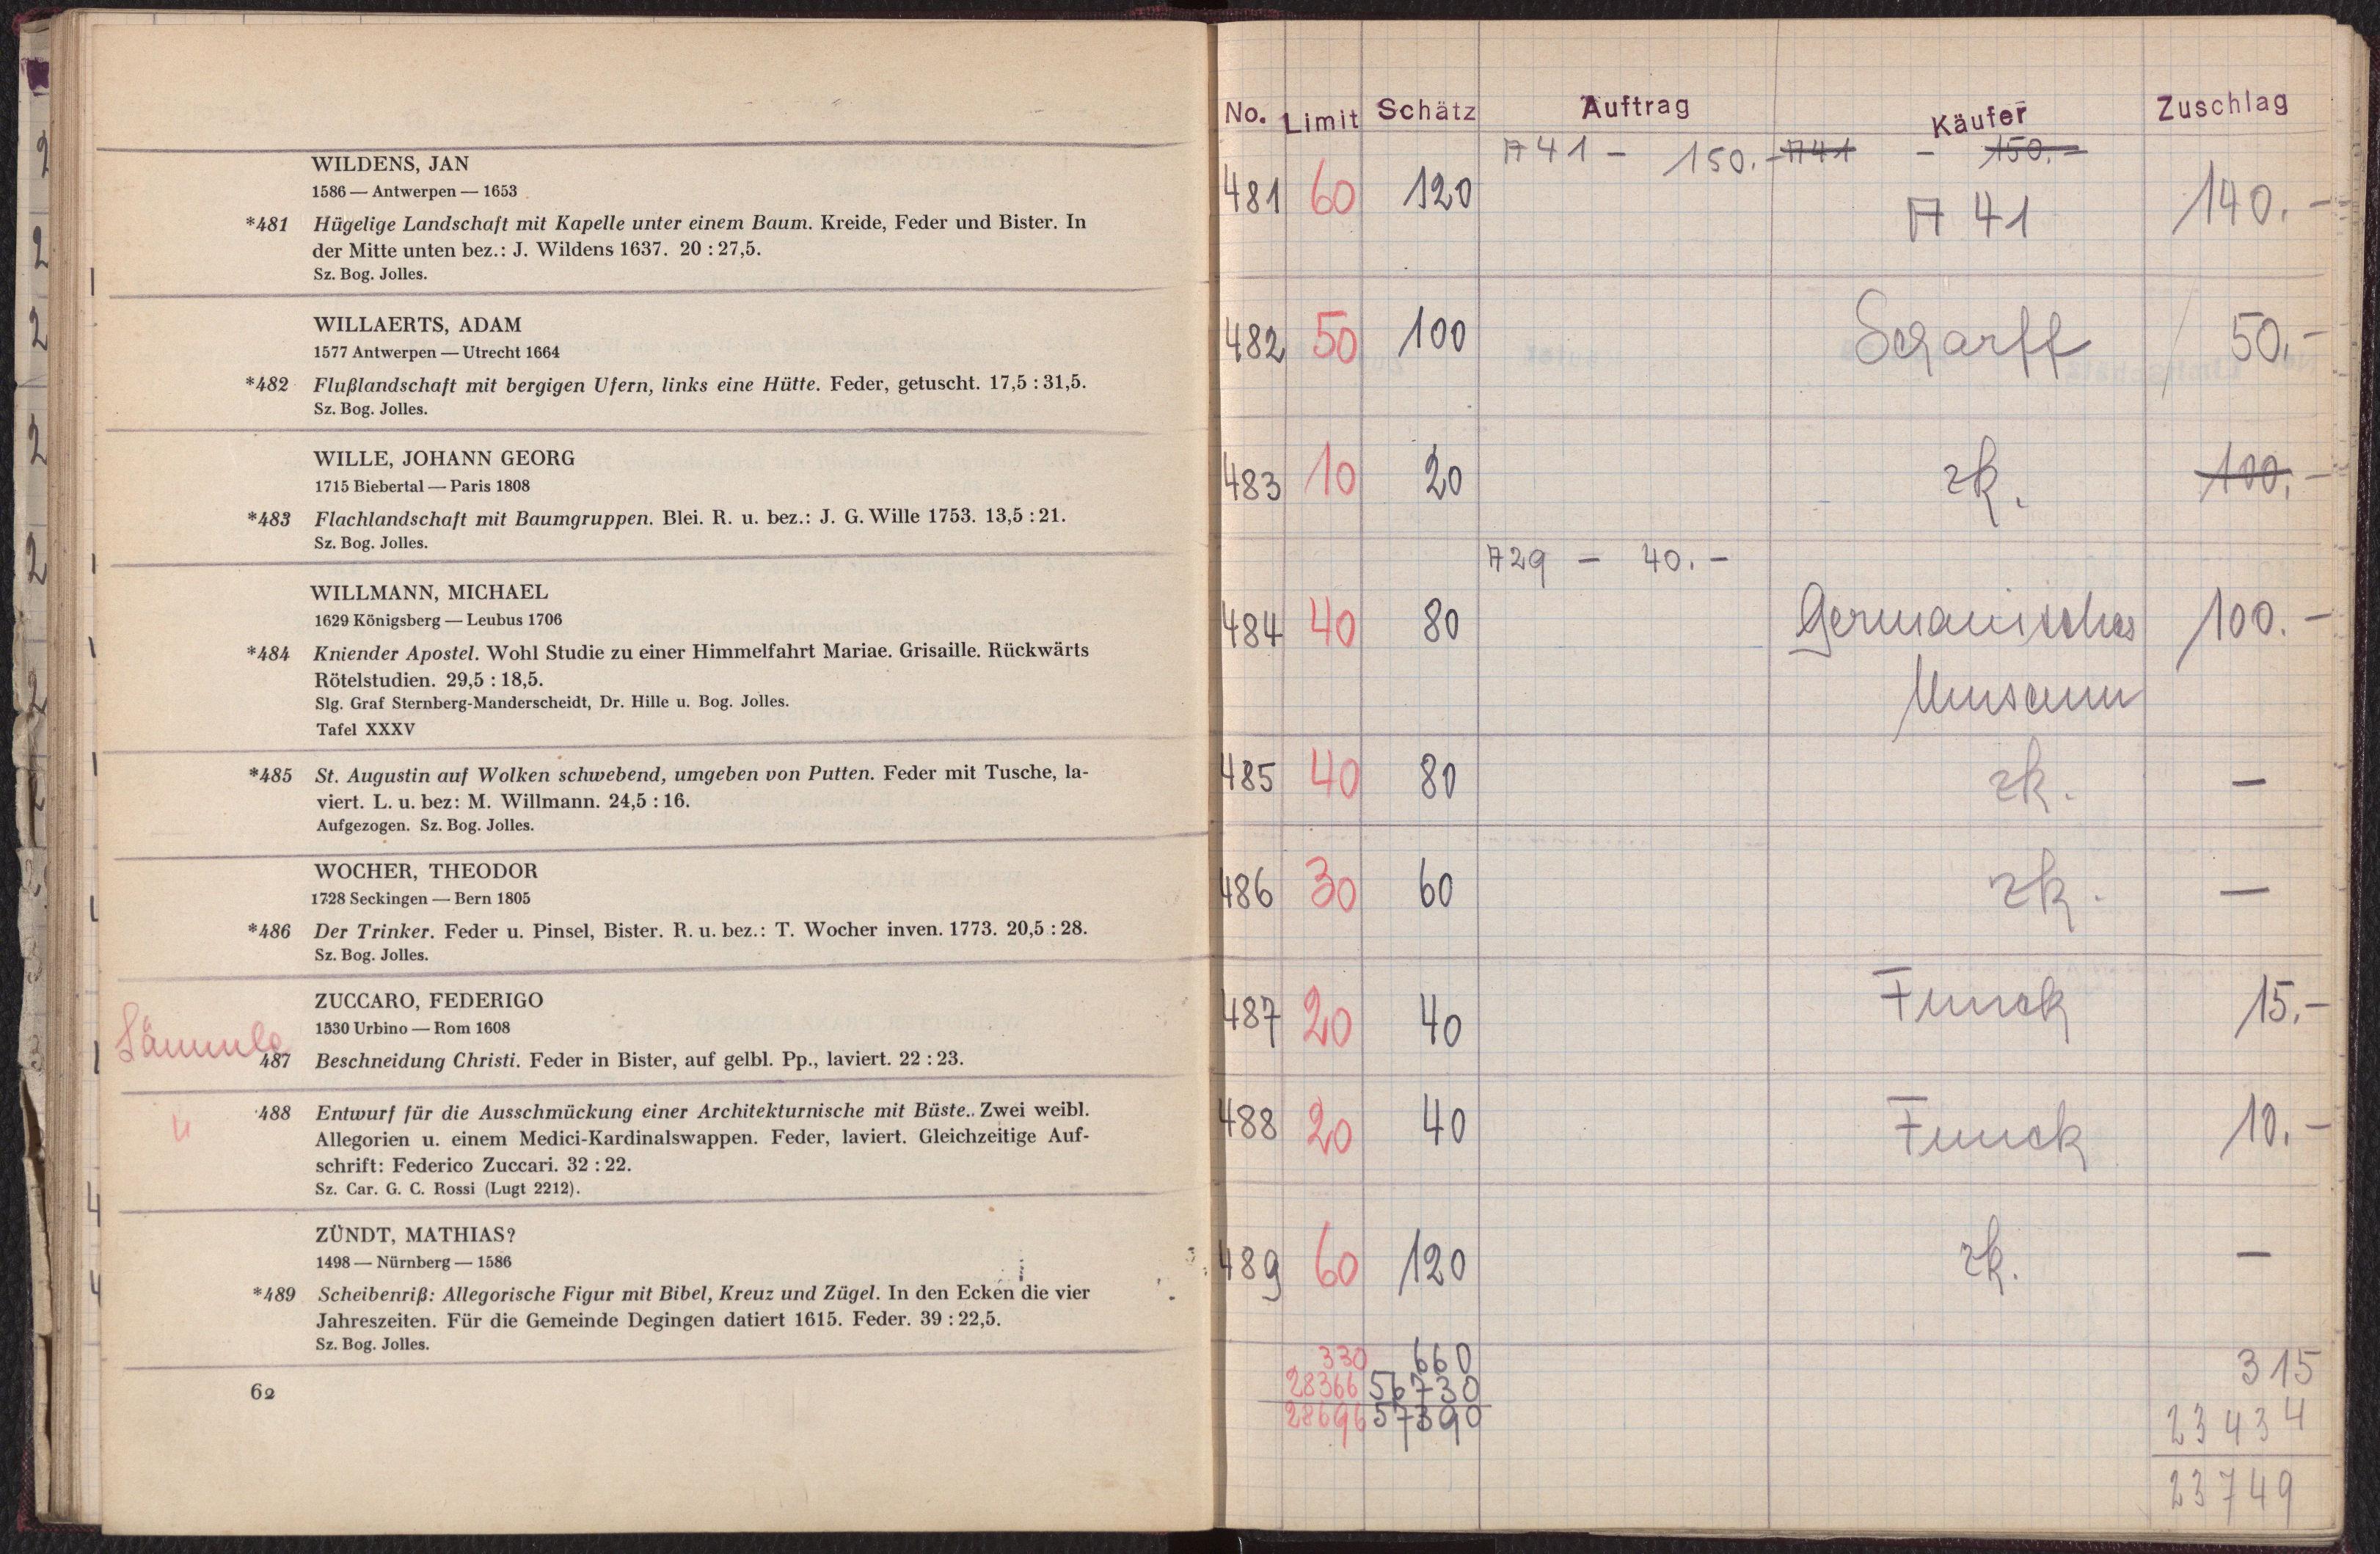 WILDENS, JAN
1586 — Antwerpen — 1653
*481 Hügelige Landschaft mit Kapelle unter einem Baum. Kreide, Feder und Bister. In
der Mitte unten bez.: J. Wildens 1637. 20 : 27,5.
Sz. Bog. Jolles.
WILLAERTS, ADAM
1577 Antwerpen — Utrecht 1664
*482 Flußlandschaft mit bergigen Ufern, links eine Hütte. Feder, getuscht. 17,5 : 31,5.
Sz. Bog. Jolles.
WILLE, JOHANN GEORG
1715 Biebertal — Paris 1808
*483 Flachlandschaft mit Baumgruppen. Blei. R. u. bez.: J. G. Wille 1753. 13,5 : 21.
Sz. Bog. Jolles.
WILLMANN, MICHAEL
1629 Königsberg — Leubus 1706
*484 Kniender Apostel. Wohl Studie zu einer Himmelfahrt Mariae. Grisaille. Rückwärts
Rötelstudien. 29,5 : 18,5.
Slg. Graf Sternberg-Manderscheidt, Dr. Hille u. Bog. Jolles.
Tafel XXXV
*485 St. Augustin auf Wolken schwebend, umgeben von Putten. Feder mit Tusche, la-
viert. L. u. bez: M. Willmann. 24,5 : 16.
Aufgezogen. Sz. Bog. Jolles.
WOCHER, THEODOR
1728 Seckingen — Bern 1805
*486 Der Trinker. Feder u. Pinsel, Bister. R. u. bez.: T. Wocher inven. 1773. 20,5 : 28.
Sz. Bog. Jolles.
ZUCCARO, FEDERIGO
1530 Urbino — Rom 1608
487 Beschneidung Christi. Feder in Bister, auf gelbl. Pp., laviert. 22 : 23.
488 Entwurf für die Ausschmückung einer Architekturnische mit Büste.. Zwei weibl.
Allegorien u. einem Medici-Kardinalswappen. Feder, laviert. Gleichzeitige Auf-
schrift: Federico Zuccari. 32 : 22.
Sz. Car. G. C. Rossi (Lugt 2212).
ZÜNDT, MATHIAS?
1498 — Nürnberg — 1586
*489 Scheibenriß: Allegorische Figur mit Bibel, Kreuz und Zügel. In den Ecken die vier
Jahreszeiten. Für die Gemeinde Degingen datiert 1615. Feder. 39 : 22,5.
Sz. Bog. Jolles.
62
No. Limit Schätz Auftrag Käufer Zuschlag
A 41 – 150.– A 41 – 150.–
481 60 120 A 41 140.–
482 50 100 Scharff 50.–
483 10 20 zk. 100.–
A 29 – 40.–
484 40 80 Germanisches 100.–
Museum
485 40 80 zk. –
486 30 60 zk. –
487 20 40 Funck 15.–
488 20 40 Funck 10.–
489 60 120 zk. –
330 660 315
28366 56730 23434
28696 57390 23749